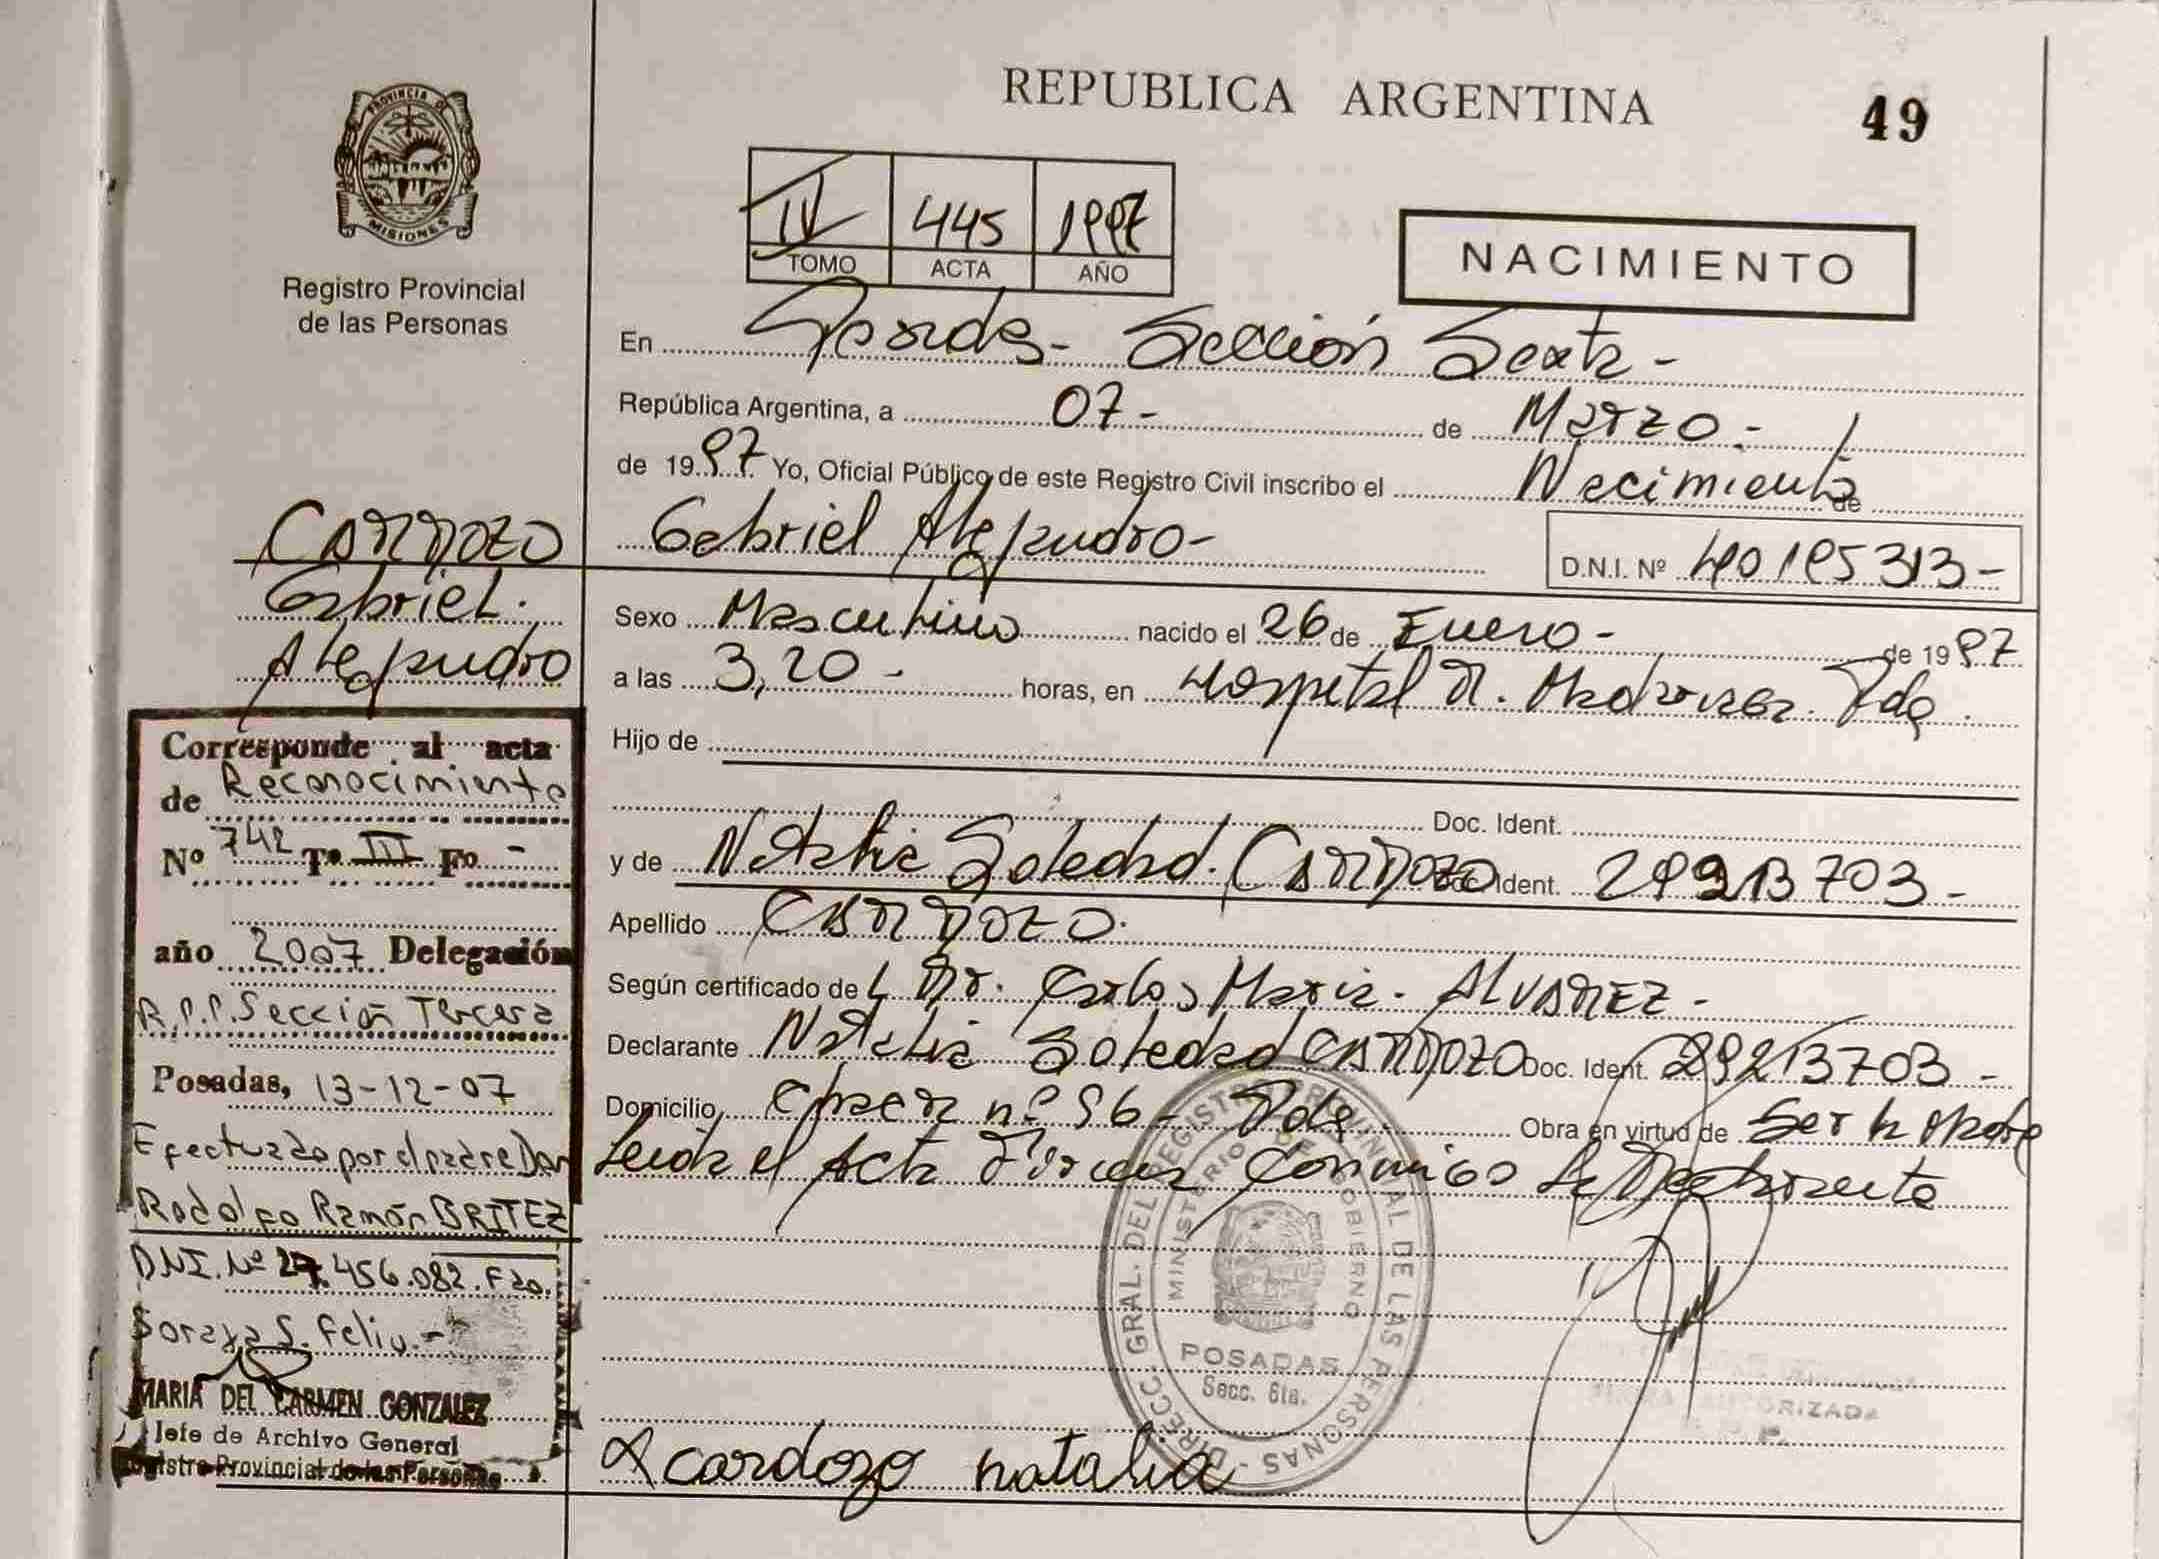 PROVINCIA DE
MISIONES
Registro Provincial
de las Personas
REPUBLICA ARGENTINA
49
IV 445 1997
TOMO ACTA AÑO
NACIMIENTO
En Posadas - Sección Sexta -
República Argentina, a 07 - de Marzo. -
de 1997 Yo, Oficial Público de este Registro Civil inscribo el Nacimiento de
Gabriel Alejandro -
D.N.I. Nº 40195313 -
CARDOZO
Gabriel.
Alejandro
Sexo Masculino nacido el 26 de Enero - de 1997
a las 3,20 - horas, en Hospital R. Madariaga. Pdas.
Hijo de
Doc. Ident.
y de Natalia Soledad. CARDOZO Doc. Ident. 29213703 -
Apellido CARDOZO.
Según certificado del Dr. Carlos Maria - ALVAREZ -
Declarante Natalia Soledad CARDOZO Doc. Ident. 29213703 -
Domicilio nº 96 - Pdas Obra en virtud de Ser la Madre
Leida el Acta Firman Conmigo la Declarante
Corresponde al acta
de Reconocimiento
Nº 742 Tº III Fº -
año 2007 Delegación
R.P.P. Sección Tercera
Posadas, 13-12-07
Efectuado por el padre Don
Rodolfo Ramón BRITEZ
DNI. Nº 27.456.082. Fdo.
Soraya S. Feliu. -
MARIA DEL CARMEN GONZALEZ
Jefe de Archivo General
Registro Provincial de las Personas
DIRECC. GRAL. DEL REGISTRO PROVINCIAL DE LAS PERSONAS -
MINISTERIO DE GOBIERNO
POSADAS
Secc. 6ta.
AUTORIZADA
cardozo natalia